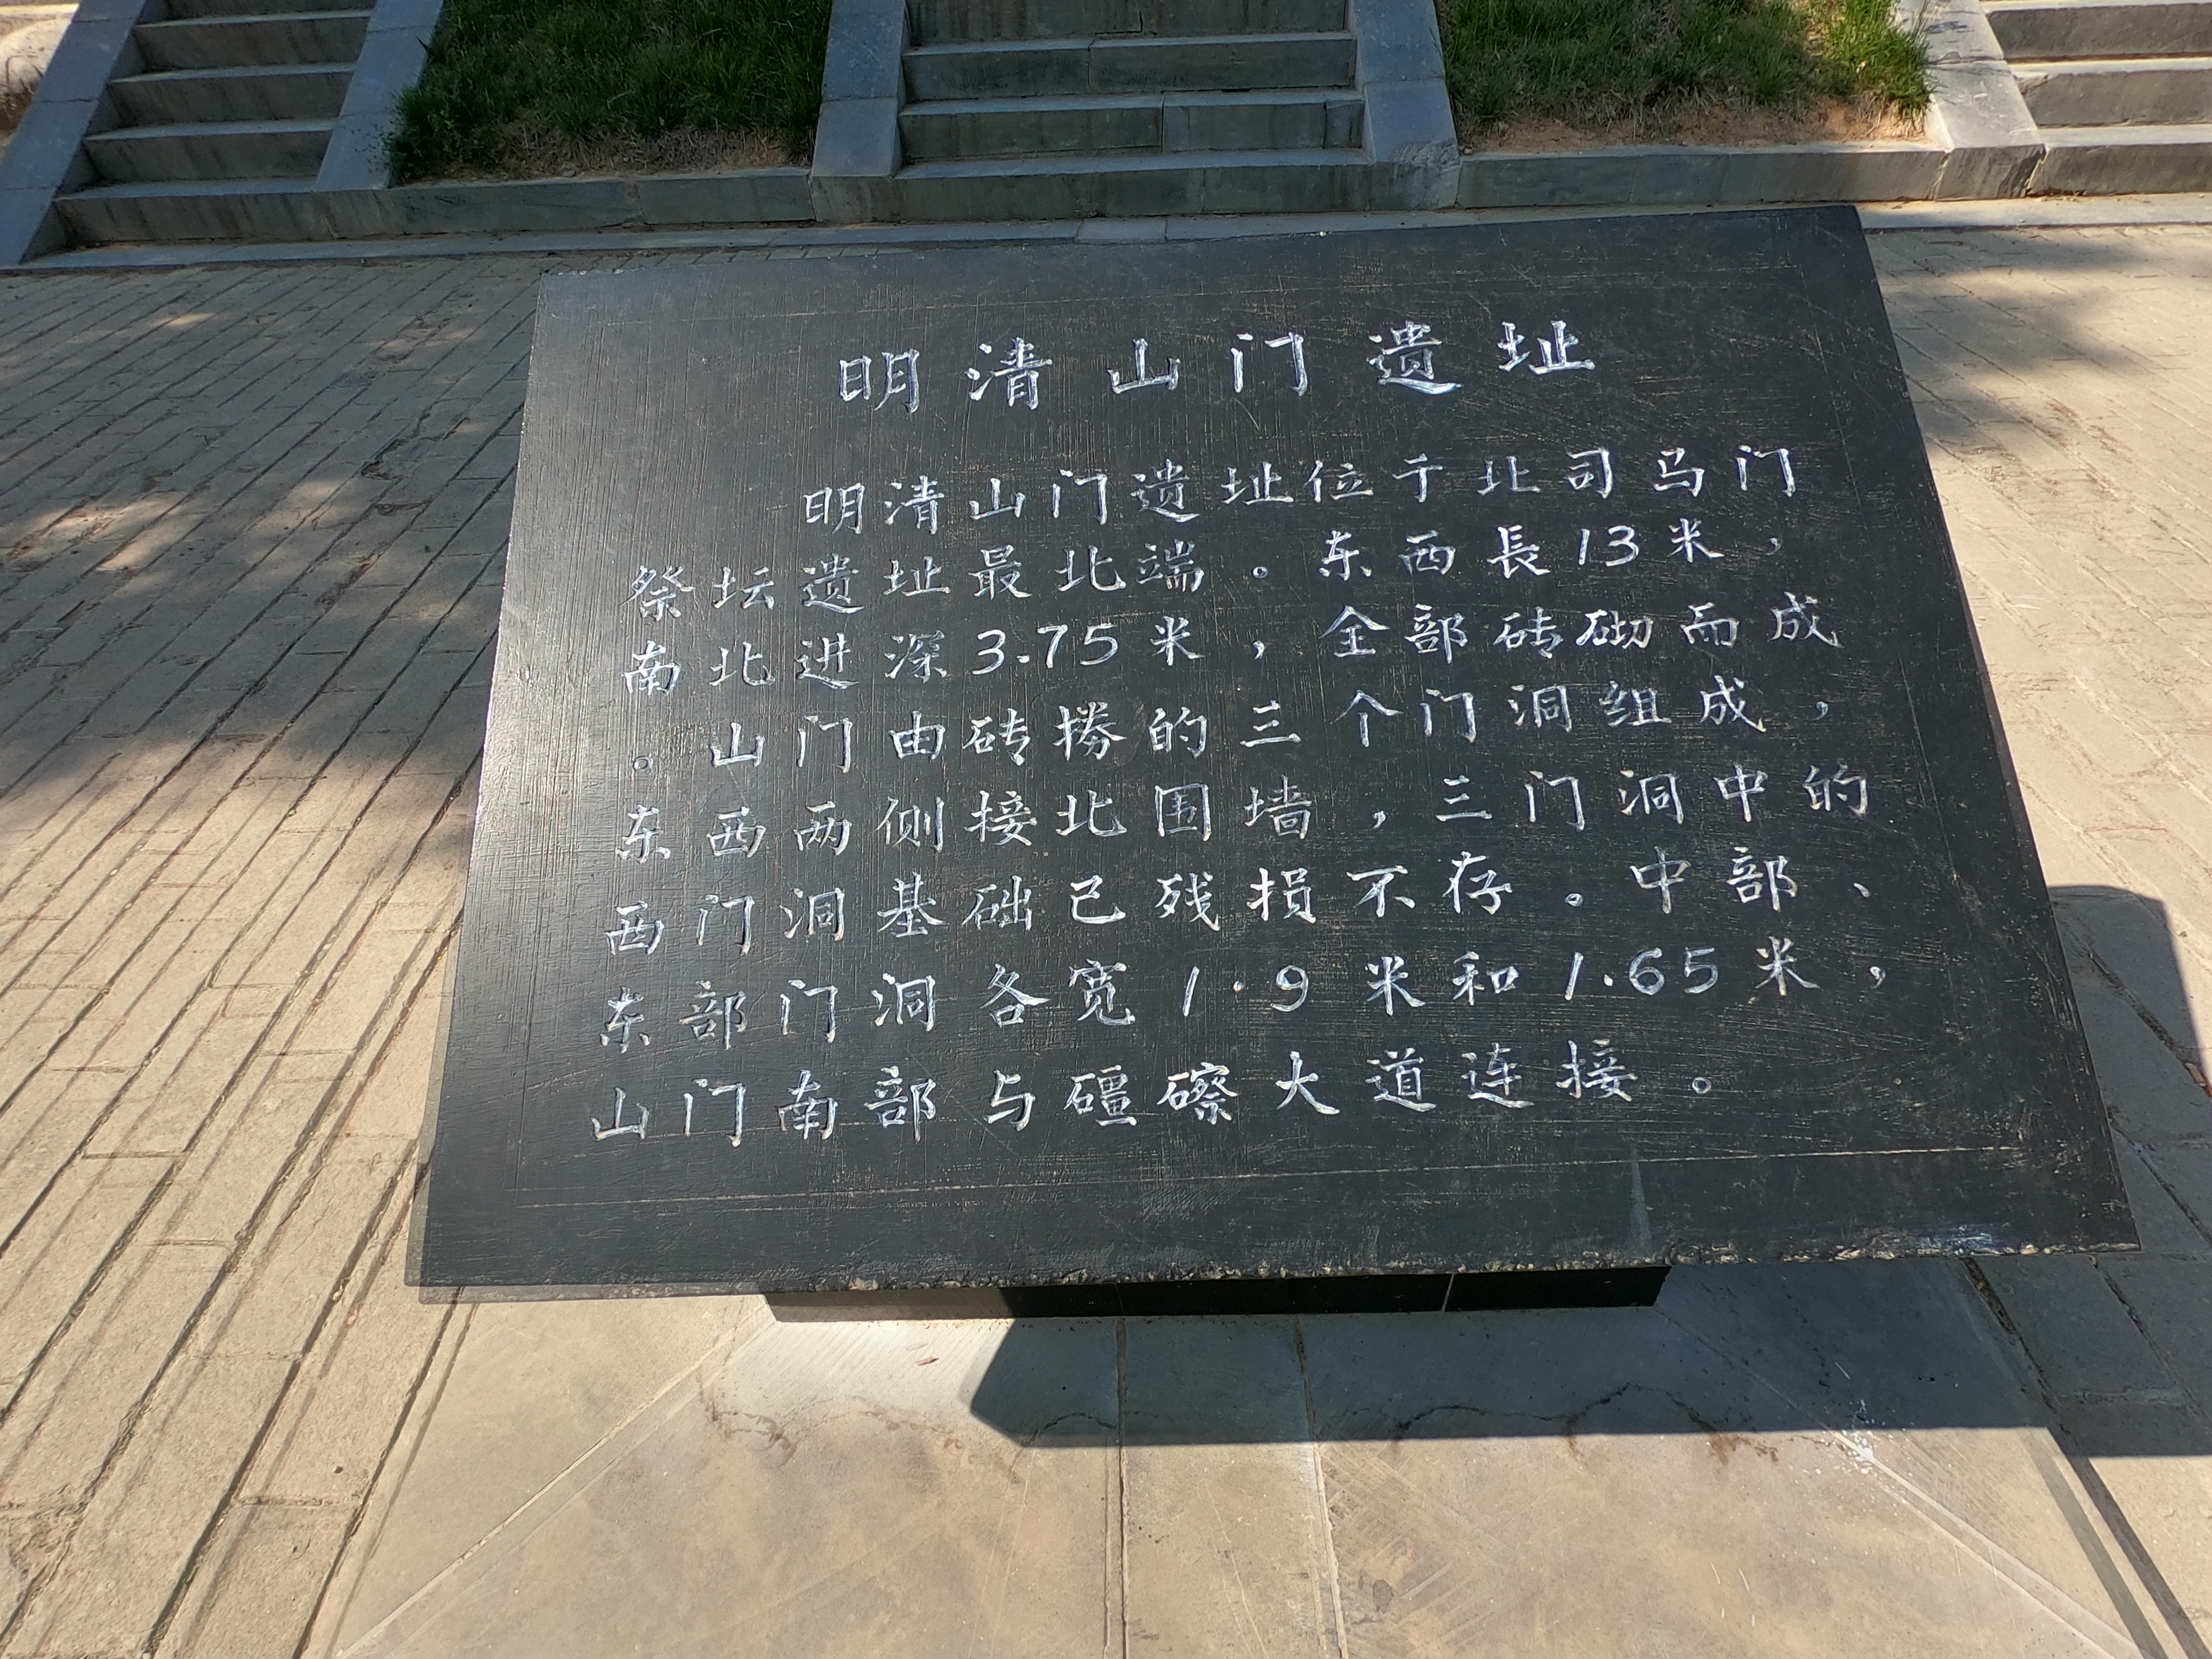 明清山门遗址
明清山门遗址位于北司马门
祭坛遗址最北端。东西長13米，
南北进深3.75米，全部砖砌而成
。山门由砖捞的三个门洞组成，
东西两侧接北围墙，三门洞中的
西门洞基础已残损不存。中部、
东部门洞各宽1.9米和1.65米，
山门南部与礓礤大道连接。